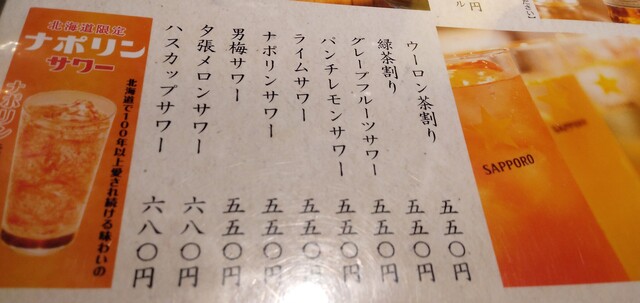 ウーロン茶割り 五五〇円
緑茶割り 五五〇円
グレープフルーツサワー 五五〇円
パンチレモンサワー 五五〇円
ライムサワー 五五〇円
ナポリンサワー 五五〇円
男梅サワー 五五〇円
夕張メロンサワー 六八〇円
ハスカップサワー 六八〇円
北海道限定
ナポリン
サワー
北海道で100年以上愛され続ける味わいの
ナポリン
SAPPORO
SAPPORO
円